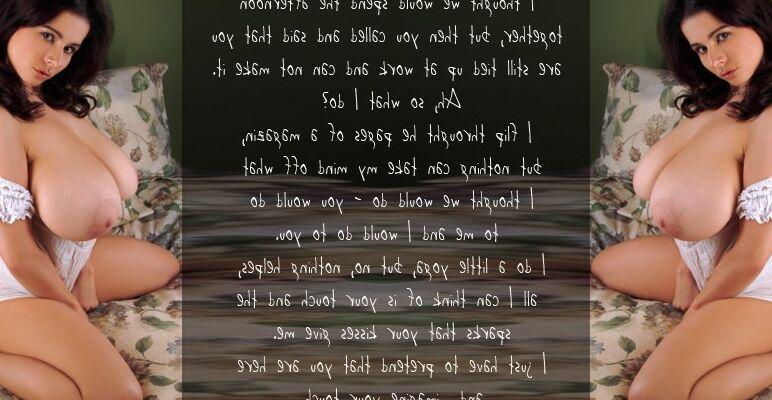 I thought we would spend the afternoon
together, but then you called and said that you
are still tied up at work and can not make it.
Ah, so what do I do?
I flip throught he pages of a magazin,
but nothing can take my mind off what
I thought we would do - you would do
to me and I would do to you.
I do a little yoga, but no, nothing helpes,
all I can think of is your touch and the
sparks that your kisses give me.
I just have to pretend that you are here
and imagine your touch